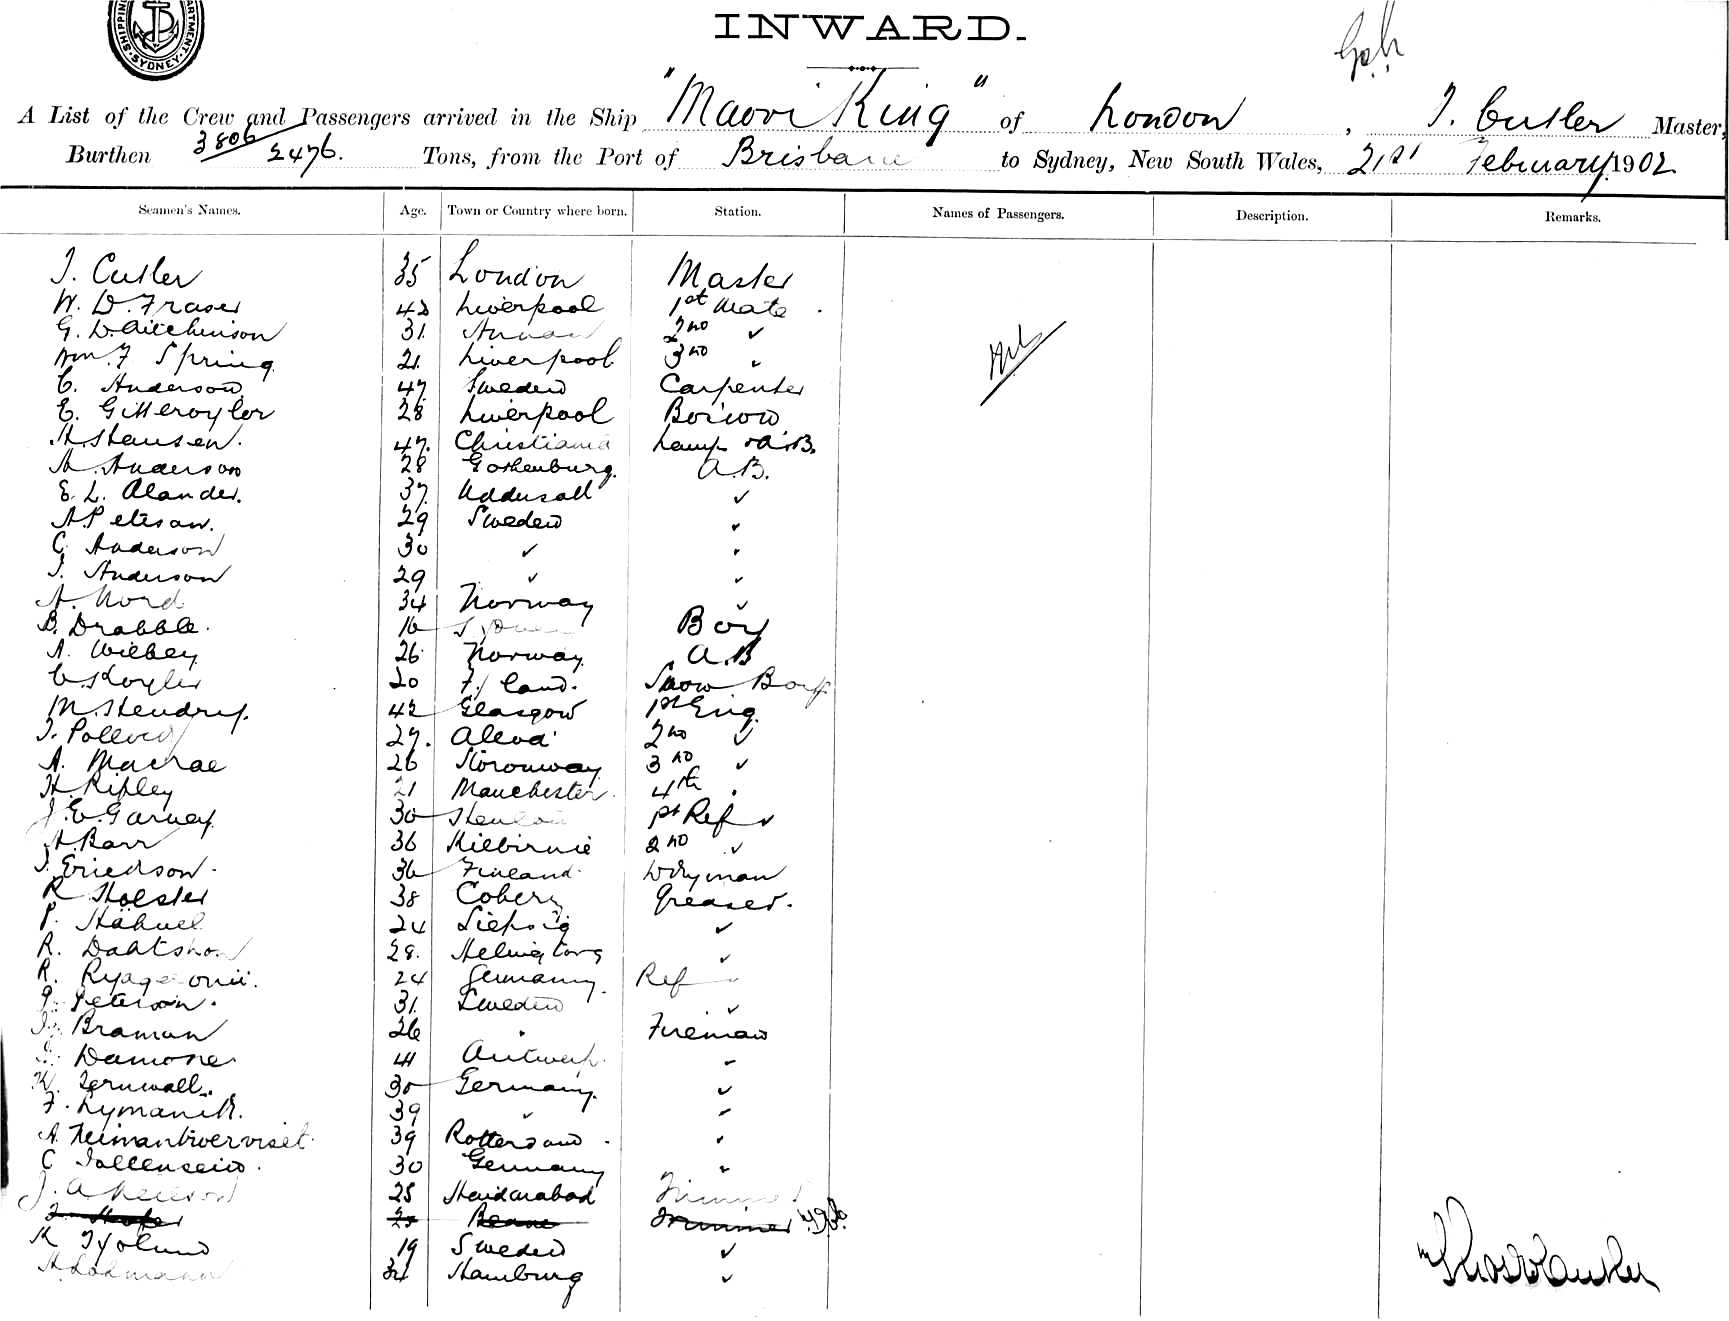 SHIPPING DEPARTMENT. SYDNEY.
INWARD.
A List of the Crew and Passengers arrived in the Ship "Maori King" of London, T. Cutler Master,
Burthen 3806 2476. Tons, from the Port of Brisbane to Sydney, New South Wales, 21st February 1902
Seamen's Names. Age. Town or Country where born. Station. Names of Passengers. Description. Remarks.
T. Cutler 35 London Master
W. D. Fraser 42 Liverpool 1st Mate
G. D. Aitchinson 31. Annan 2nd ✓
Wm. F Spring 21. Liverpool 3rd "
Nil
C. Anderson 47. Sweden Carpenter
E. Gilleroylor 28 Liverpool Bo'sun
H. Hansen. 47. Christiania Lamp & A.B.
A. Anderson 28 Gothenburg. A.B.
E. L. Alander. 37. ✓
A. Peterson. 29 Sweden "
C. Anderson 30 ✓ "
J. Anderson 29 ✓ ✓
A. Nord 34 Norway ✓
B. Drabble. 16 Boy
A. Wilbey 26 Norway. A.B
20 Boy
M. Hendry. 42 Glasgow 1st Eng.
27. Alloa 2nd ✓
A. Macrae 26 Stornoway 3rd ✓
H. Ripley 21 Manchester. 4th "
J. E. Garvey. 30 1st Ref ✓
A. Barr 36 Kilbirnie 2nd ✓
J. Erickson. 36 Finland D'kyman
R. Holster 38 Coberg Greaser.
P. Hähnel 24 Liepsig ✓
R. 28. ✓
R. 24 Germany. Ref
P. Peterson. 31. Sweden ✓
J. Braman 26 " Fireman
Damone 41 Antwerp.
K. Zernwall. 30 Germany. ✓
F. Lymanik. 39 ✓
A. 39 Rotterdam. "
C 30 Germany "
J. 25 Trimmer
Trimmer
K 19 Sweden ✓
H. Lohmann 31 Hamburg ✓